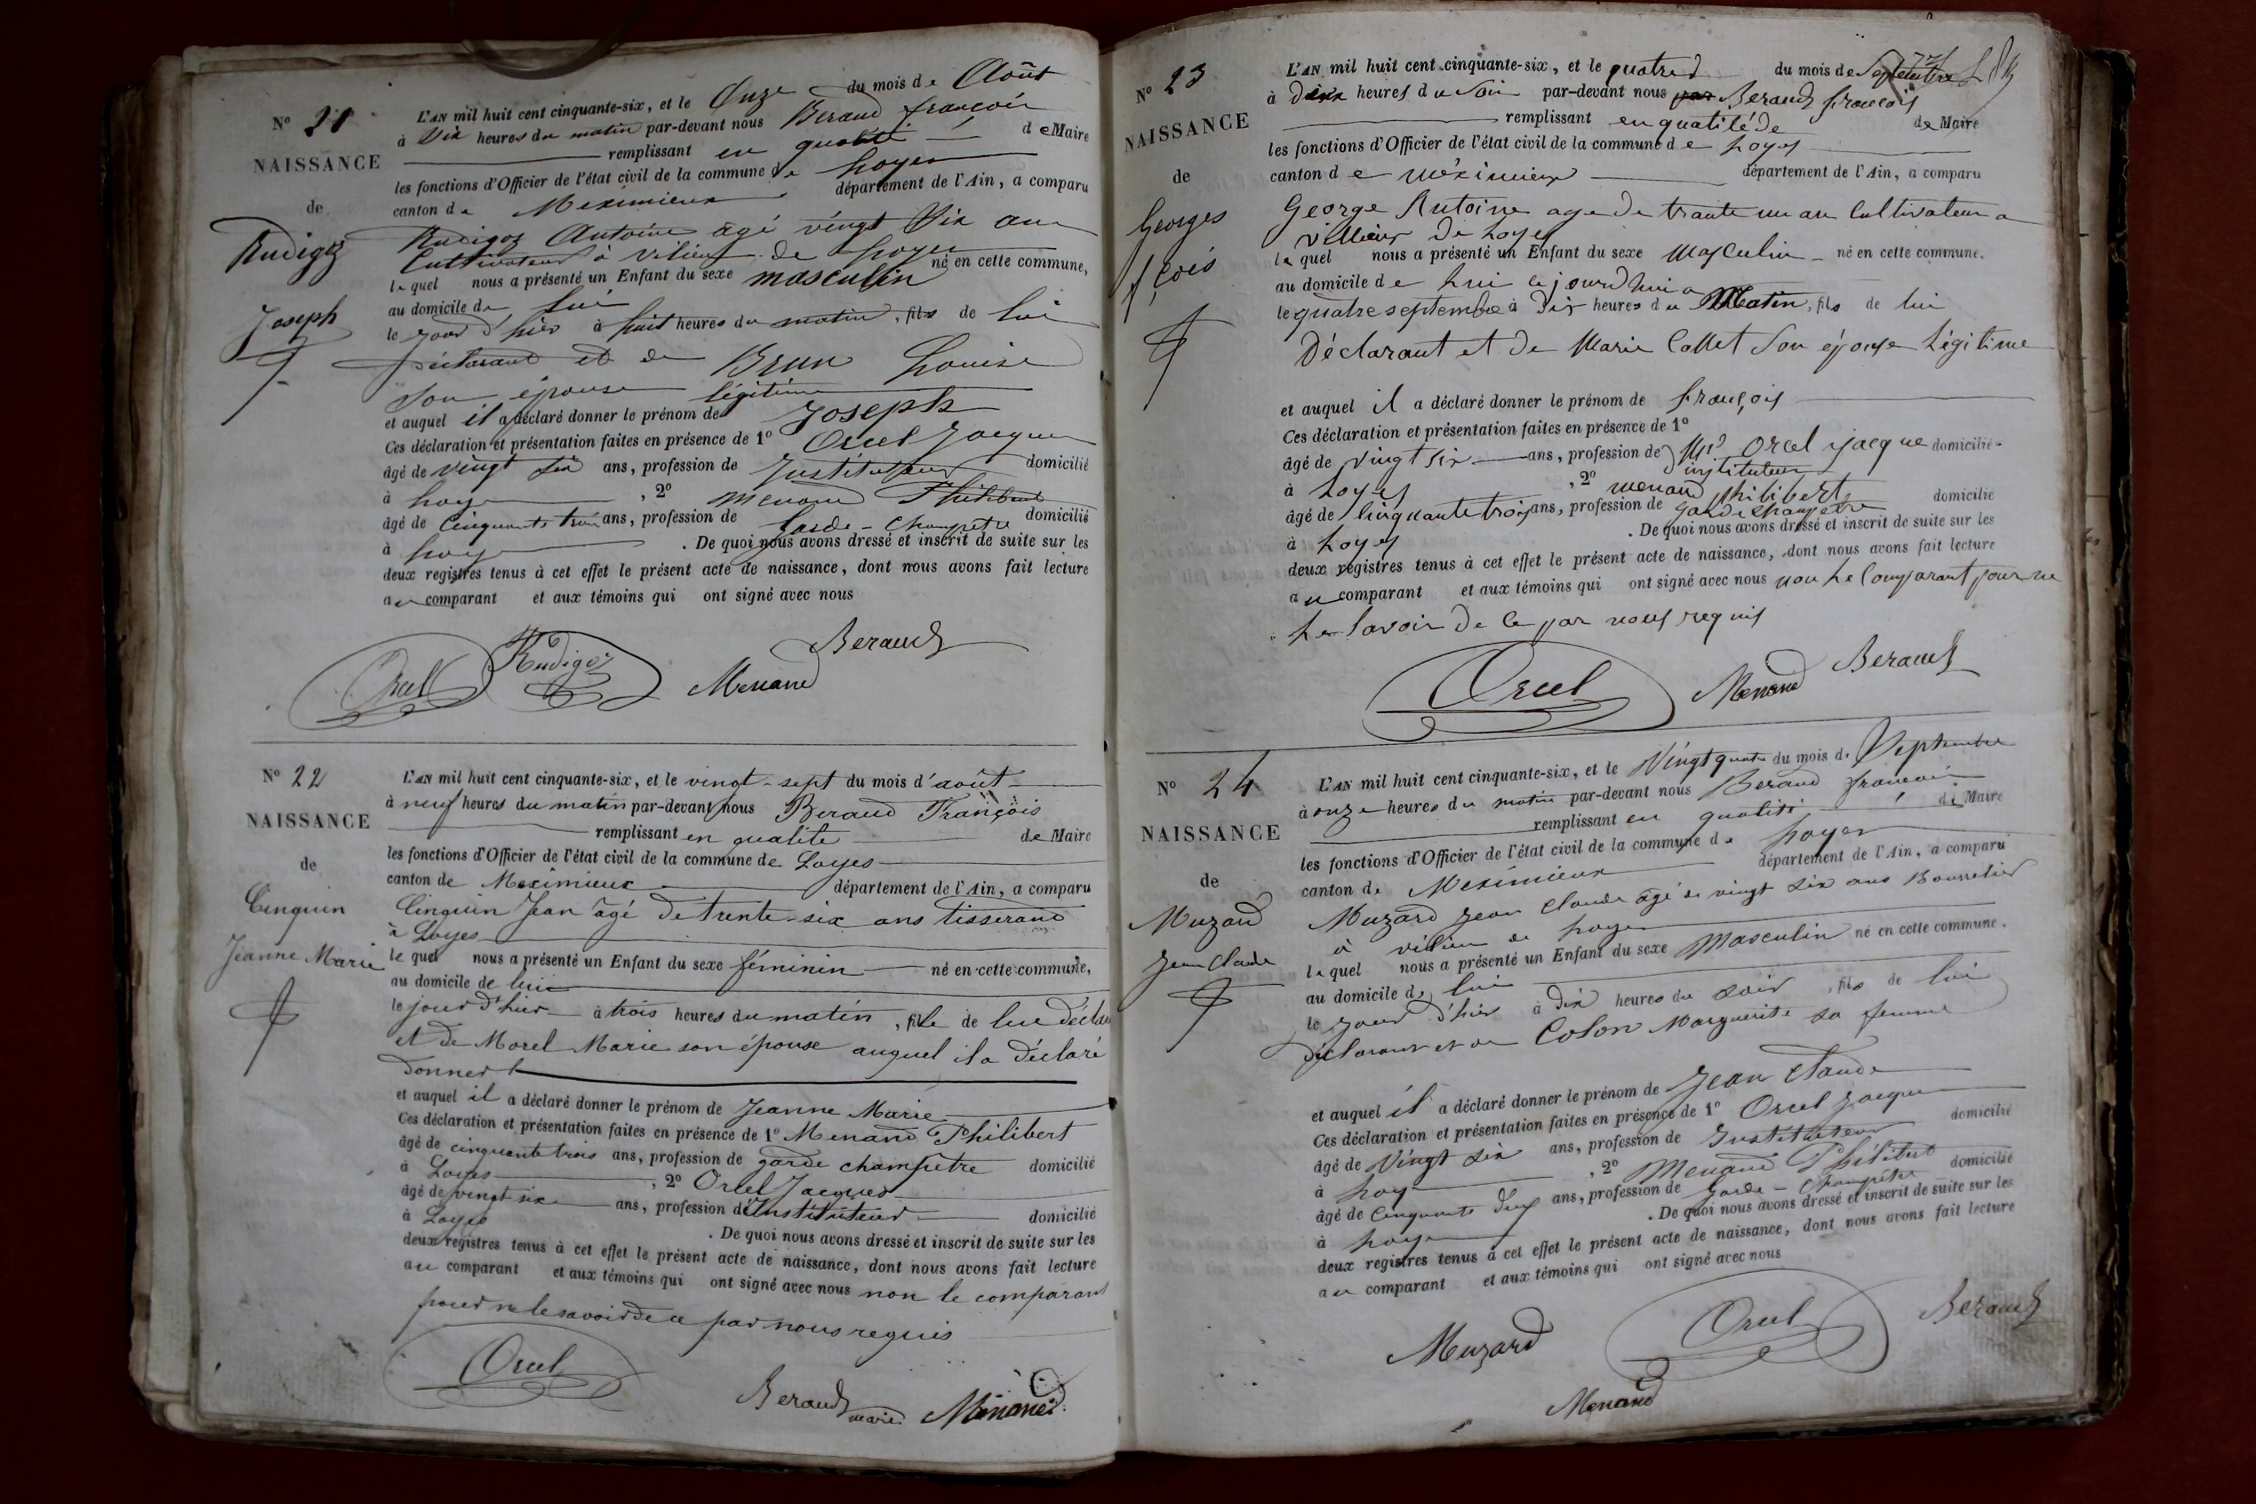 N° 21
NAISSANCE
de
Rudigoz
Joseph
L'AN mil huit cent cinquante-six, et le Onze du mois de Août
à Dix heures du matin par-devant nous Beraud françois
remplissant en qualité de Maire
les fonctions d'Officier de l'état civil de la commune de Loyes
canton de Meximieux département de l'Ain, a comparu
Rudigoz Antoine agé vingt Six ans
Cultivateur à vilieux de Loyes
lequel nous a présenté un Enfant du sexe masculin né en cette commune,
au domicile de lui
le jour d'hier à huit heures du matin, fils de lui
Déclarant et de Brun Louise
Son épouse légitime
et auquel il a déclaré donner le prénom de Joseph
Ces déclaration et présentation faites en présence de 1° Orcel Jacques
âgé de vingt six ans, profession de Instituteur domicilié
à Loyes, 2° Menand Philibert
âgé de Cinquante trois ans, profession de Garde-Champetre domicilié
à Loyes. De quoi nous avons dressé et inscrit de suite sur les
deux registres tenus à cet effet le présent acte de naissance, dont nous avons fait lecture
au comparant et aux témoins qui ont signé avec nous
Beraud
Orcel Rudigoz Menand
N° 22
NAISSANCE
de
Cinquin
Jeanne Marie
L'AN mil huit cent cinquante-six, et le vingt-sept du mois d'août
à neuf heures du matin par-devant nous Beraud François
remplissant en qualité de Maire
les fonctions d'Officier de l'état civil de la commune de Loyes
canton de Meximieux département de l'Ain, a comparu
Cinquin Jean âgé de trente-six ans tisserand
à Loyes
lequel nous a présenté un Enfant du sexe féminin né en cette commune,
au domicile de lui
le jour d'hier à trois heures du matin, fille de lui déclar
et de Morel Marie son épouse auquel il a déclaré
donner l
et auquel il a déclaré donner le prénom de Jeanne Marie
Ces déclaration et présentation faites en présence de 1° Menand Philibert
âgé de cinquante trois ans, profession de garde champêtre domicilié
à Loyes, 2° Orcel Jacques
âgé de vingt six ans, profession d'Instituteur domicilié
à Loyes. De quoi nous avons dressé et inscrit de suite sur les
deux registres tenus à cet effet le présent acte de naissance, dont nous avons fait lecture
au comparant et aux témoins qui ont signé avec nous non le comparant
pour ne le savoir de ce par nous requis
Orcel
Beraud maire Menand
N° 23
NAISSANCE
de
Georges
fçois
L'AN mil huit cent cinquante-six, et le quatre du mois de Septembre
à deux heures du Soir par-devant nous par Beraud françois
remplissant en qualité de de Maire
les fonctions d'Officier de l'état civil de la commune de Loyes
canton de méximieux département de l'Ain, a comparu
George Antoine age de trante un an Cultivateur a
villieux De Loyes
lequel nous a présenté un Enfant du sexe Masculin né en cette commune.
au domicile de Lui ce jourd'hui a
le quatre septembre à Dix heures du Matin, fils de lui
Déclarant et de Marie Collet Son éponse Légitime
et auquel il a déclaré donner le prénom de françois
Ces déclaration et présentation faites en présence de 1°
âgé de vingt six ans, profession de Mr Orcel jacque domicilié
instituteur
à Loyes, 2° menand philibert
âgé de Cinquante trois ans, profession de garde champetre domicilié
à Loyes. De quoi nous avons dressé et inscrit de suite sur les
deux registres tenus à cet effet le présent acte de naissance, dont nous avons fait lecture
au comparant et aux témoins qui ont signé avec nous non Le Comparant pour ne
Le Savoir De Ce par nous requis
Orcel Menand Beraud
N° 24
NAISSANCE
de
Muzard
Jean Claude
L'AN mil huit cent cinquante-six, et le Vingt quatre du mois de Septembre
à onze heures du matin par-devant nous Beraud françois
remplissant en qualité de Maire
les fonctions d'Officier de l'état civil de la commune de Loyes
canton de Meximieux département de l'Ain, a comparu
Muzard Jean Claude âgé de vingt six ans Bourrelier
à vilieux de Loyes
lequel nous a présenté un Enfant du sexe Masculin né en cette commune.
au domicile de lui
le jour d'hier à dix heures du soir, fils de lui
déclarant et de Colon Marguerite sa femme
et auquel il a déclaré donner le prénom de Jean Claude
Ces déclaration et présentation faites en présence de 1° Orcel Jacques
âgé de Vingt six ans, profession de Instituteur domicilié
à Loyes, 2° Menand Philibert
âgé de Cinquante deux ans, profession de Garde-Champêtre domicilié
à Loyes. De quoi nous avons dressé et inscrit de suite sur les
deux registres tenus à cet effet le présent acte de naissance, dont nous avons fait lecture
au comparant et aux témoins qui ont signé avec nous
Muzard Orcel Beraud
Menand